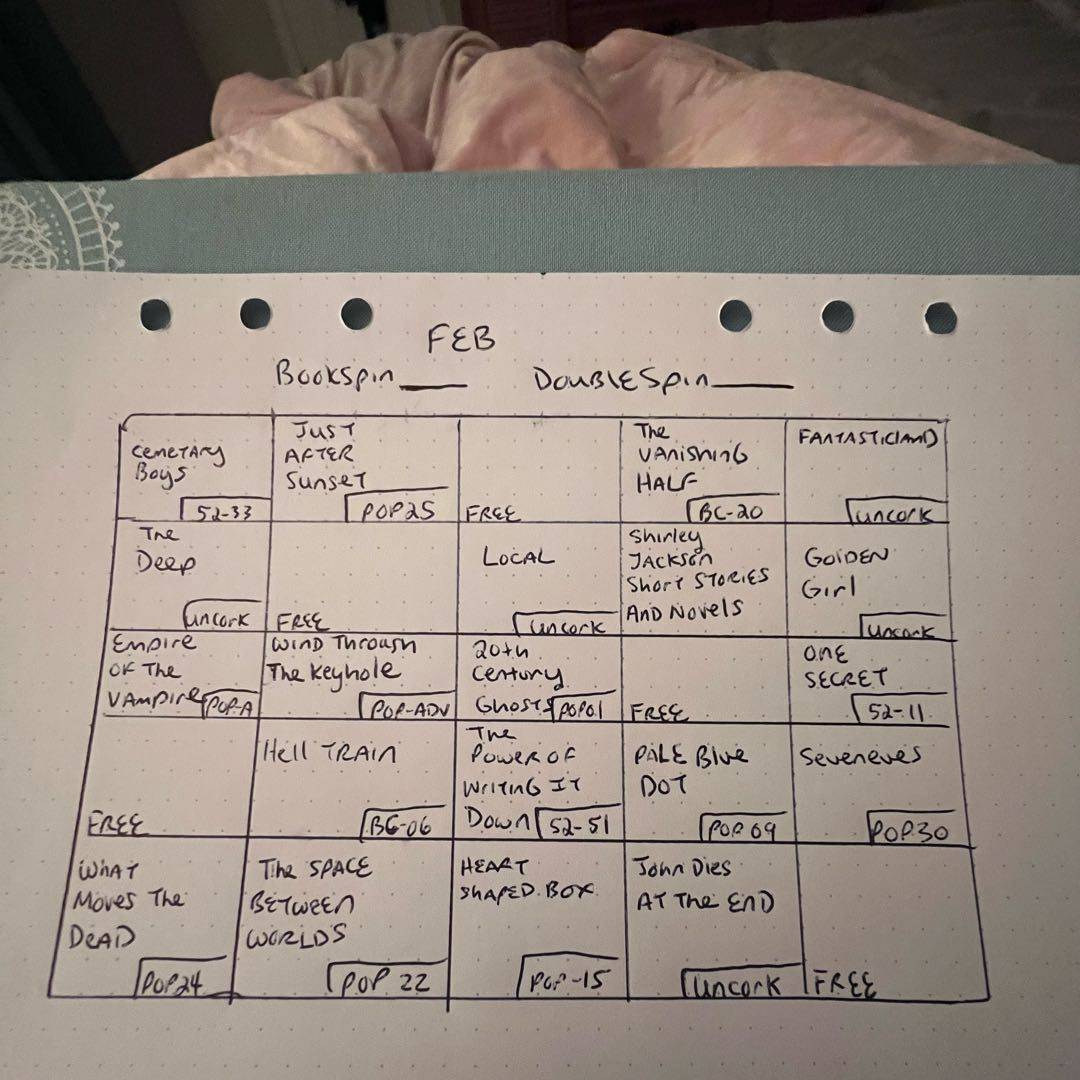 FEB
BOOKSPIN____ DOUBLESPIN____
CEMETARY
BOYS
52-33
JUST
AFTER
SUNSET
POP25
FREE
The
VANISHING
HALF
BC-20
FANTASTICLAND
UNCORK
The
Deep
UNCORK
FREE
LOCAL
UNCORK
Shirley
JACKSON
Short STORIES
AND Novels
GOLDEN
Girl
UNCORK
EMPIRE
OF The
VAMPIRE
POP-A
WIND THROUGH
The Keyhole
POP-ADV
20th
Century
Ghosts
POP01
FREE
ONE
SECRET
52-11
FREE
Hell TRAIN
BG-06
The
POWER OF
WRITING IT
DOWN
52-51
PALE Blue
DOT
POP09
Seveneves
POP30
WHAT
MOVES The
DEAD
POP24
The SPACE
BETWEEN
WORLDS
POP 22
HEART
SHAPED BOX
POP-15
John Dies
AT The END
UNCORK
FREE